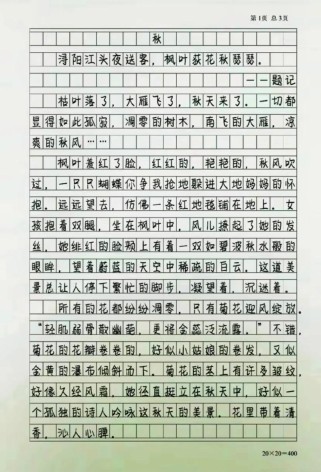 第1页 总3页
秋
浔阳江头夜送客，枫叶荻花秋瑟瑟。
——题记
枯叶落了，大雁飞了，秋天来了。一切都
显得如此孤寂，凋零的树木，南飞的大雁，凉
爽的秋风……
枫叶羞红了脸，红红的，艳艳的，秋风吹
过，一只只蝴蝶你争我抢地躲进大地妈妈的怀
抱。远远望去，仿佛一条红地毯铺在地上。女
孩抱着双腿，坐在枫叶中，风儿撩起了她的发
丝，她绯红的脸颊上有着一双如碧波秋水般的
眼眸，望着蔚蓝的天空中稀疏的白云。这道美
景总让人停下繁忙的脚步，凝望着，沉迷着。
所有的花都纷纷凋零，只有菊花迎风绽放。
“轻肌弱骨散幽葩，更将金蕊泛流霞。”不错，
菊花的花瓣卷卷的，好似小姑娘的卷发，又似
金黄的瀑布倾斜而下。菊花的茎上有许多皱纹，
好像久经风霜，她径直挺立在秋天中，好似一
个孤独的诗人吟咏这秋天的美景。花里带着清
香，沁人心脾。
20×20=400